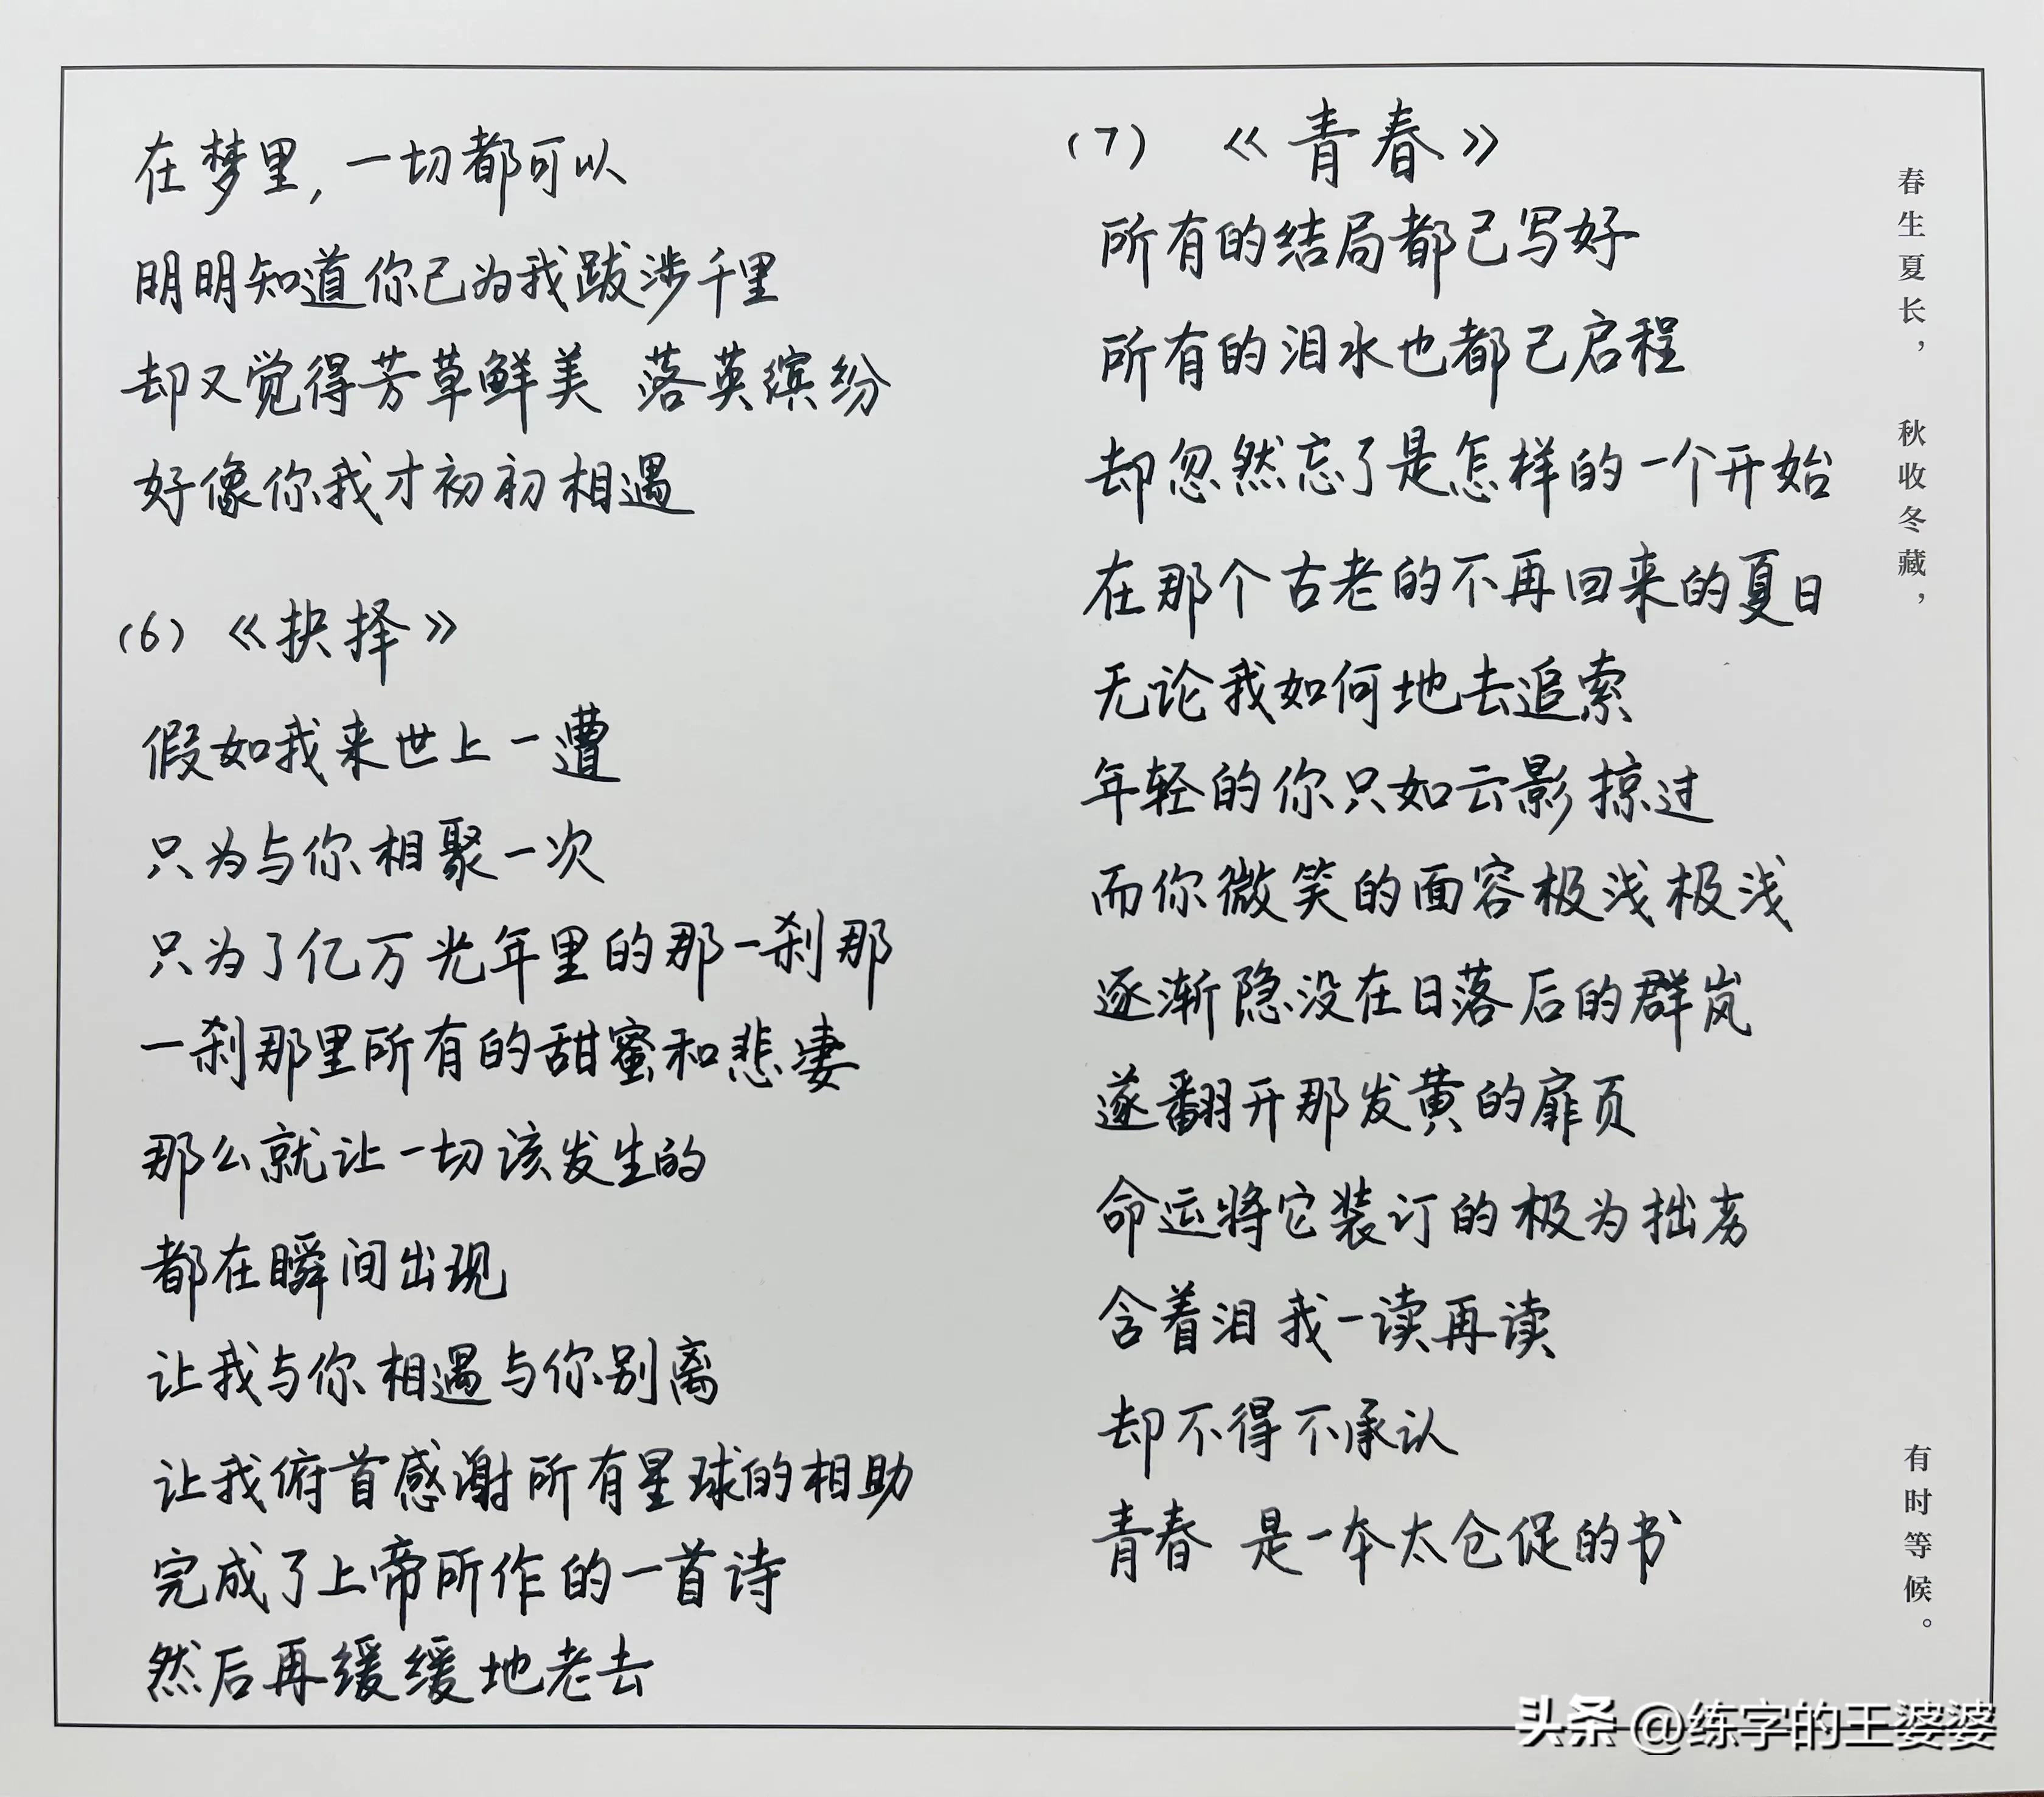 在梦里，一切都可以
明明知道你已为我跋涉千里
却又觉得芳草鲜美 落英缤纷
好像你我才初初相遇
(6) 《抉择》
假如我来世上一遭
只为与你相聚一次
只为了亿万光年里的那一刹那
一刹那里所有的甜蜜和悲凄
那么就让一切该发生的
都在瞬间出现
让我与你相遇与你别离
让我俯首感谢所有星球的相助
完成了上帝所作的一首诗
然后再缓缓地老去
(7) 《青春》
所有的结局都已写好
所有的泪水也都已启程
却忽然忘了是怎样的一个开始
在那个古老的不再回来的夏日
无论我如何地去追索
年轻的你只如云影掠过
而你微笑的面容极浅极浅
逐渐隐没在日落后的群岚
遂翻开那发黄的扉页
命运将它装订的极为拙劣
含着泪我一读再读
却不得不承认
青春 是一本太仓促的书
春生夏长， 秋收冬藏，
有时等候。
头条 @练字的王婆婆